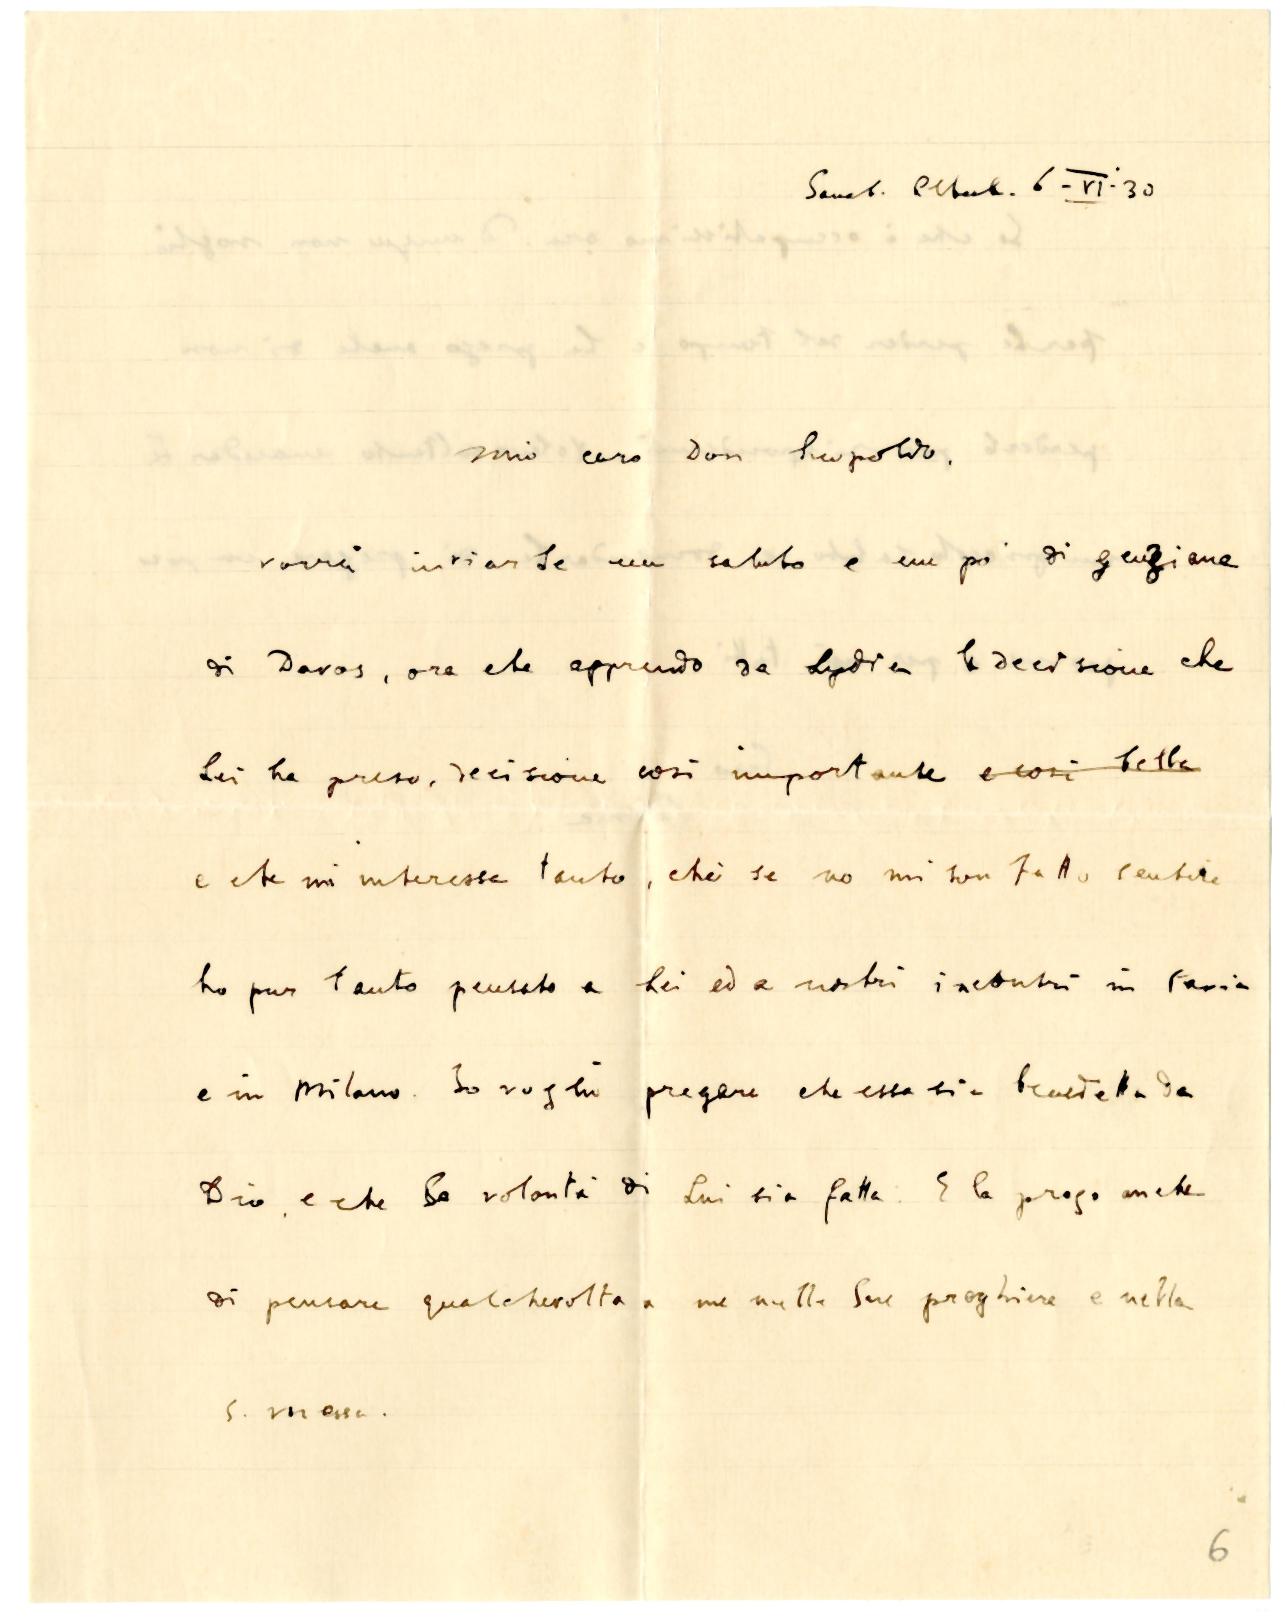 Sanat. Albert. 6-VI-30
Mio caro Don Leopoldo,
vorrei inviarLe un saluto e un pò di genziane
di Davos, ora che apprendo da Lydia la decisione che
Lei ha preso, decisione così importante e così bella
e che mi interessa tanto, chè se no mi son fatto sentire
ho pur tanto pensato a Lei ed a nostri incontri in Pavia
e in Milano. Io voglio pregare che essa sia benedetta da
Dio, e che la volontà di Lui sia fatta. E la prego anche
di pensare qualchevolta a me nelle Sue preghiere e nella
S. Messa.
6